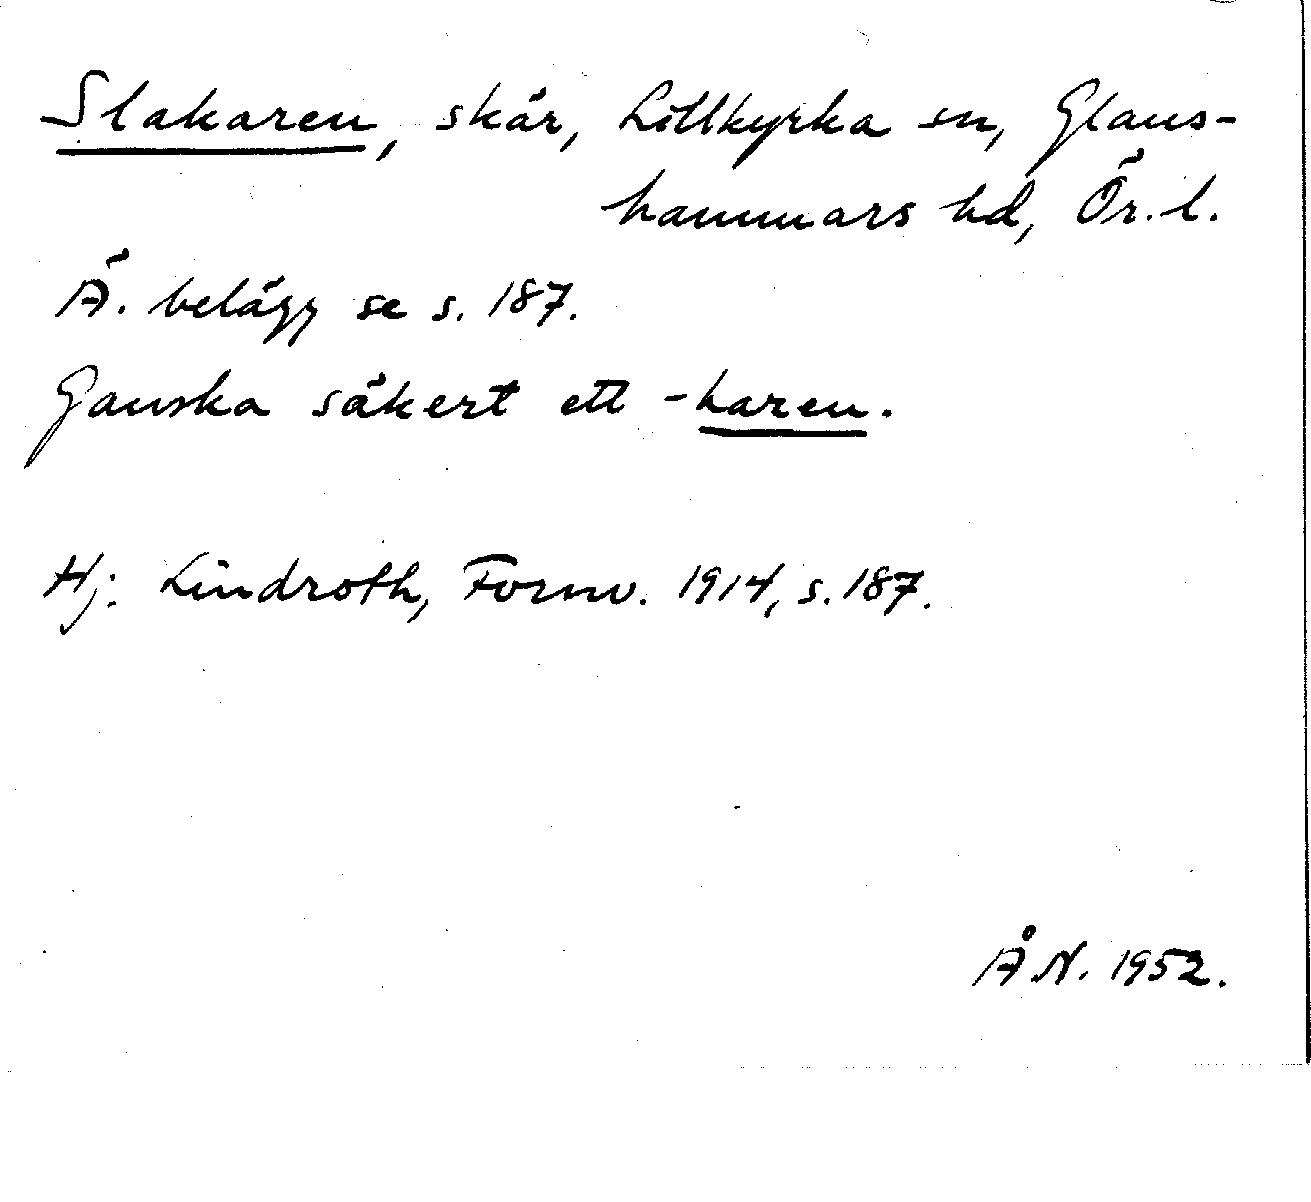 Slakaren, skär, Lillkyrka sn, Glans-
hammars hd, Ör. l.
Ä. belägg se s. 187.
Ganska säkert ett -haren.
Hj. Lindroth, Fornv. 1914, s. 187.
ÅN. 1952.